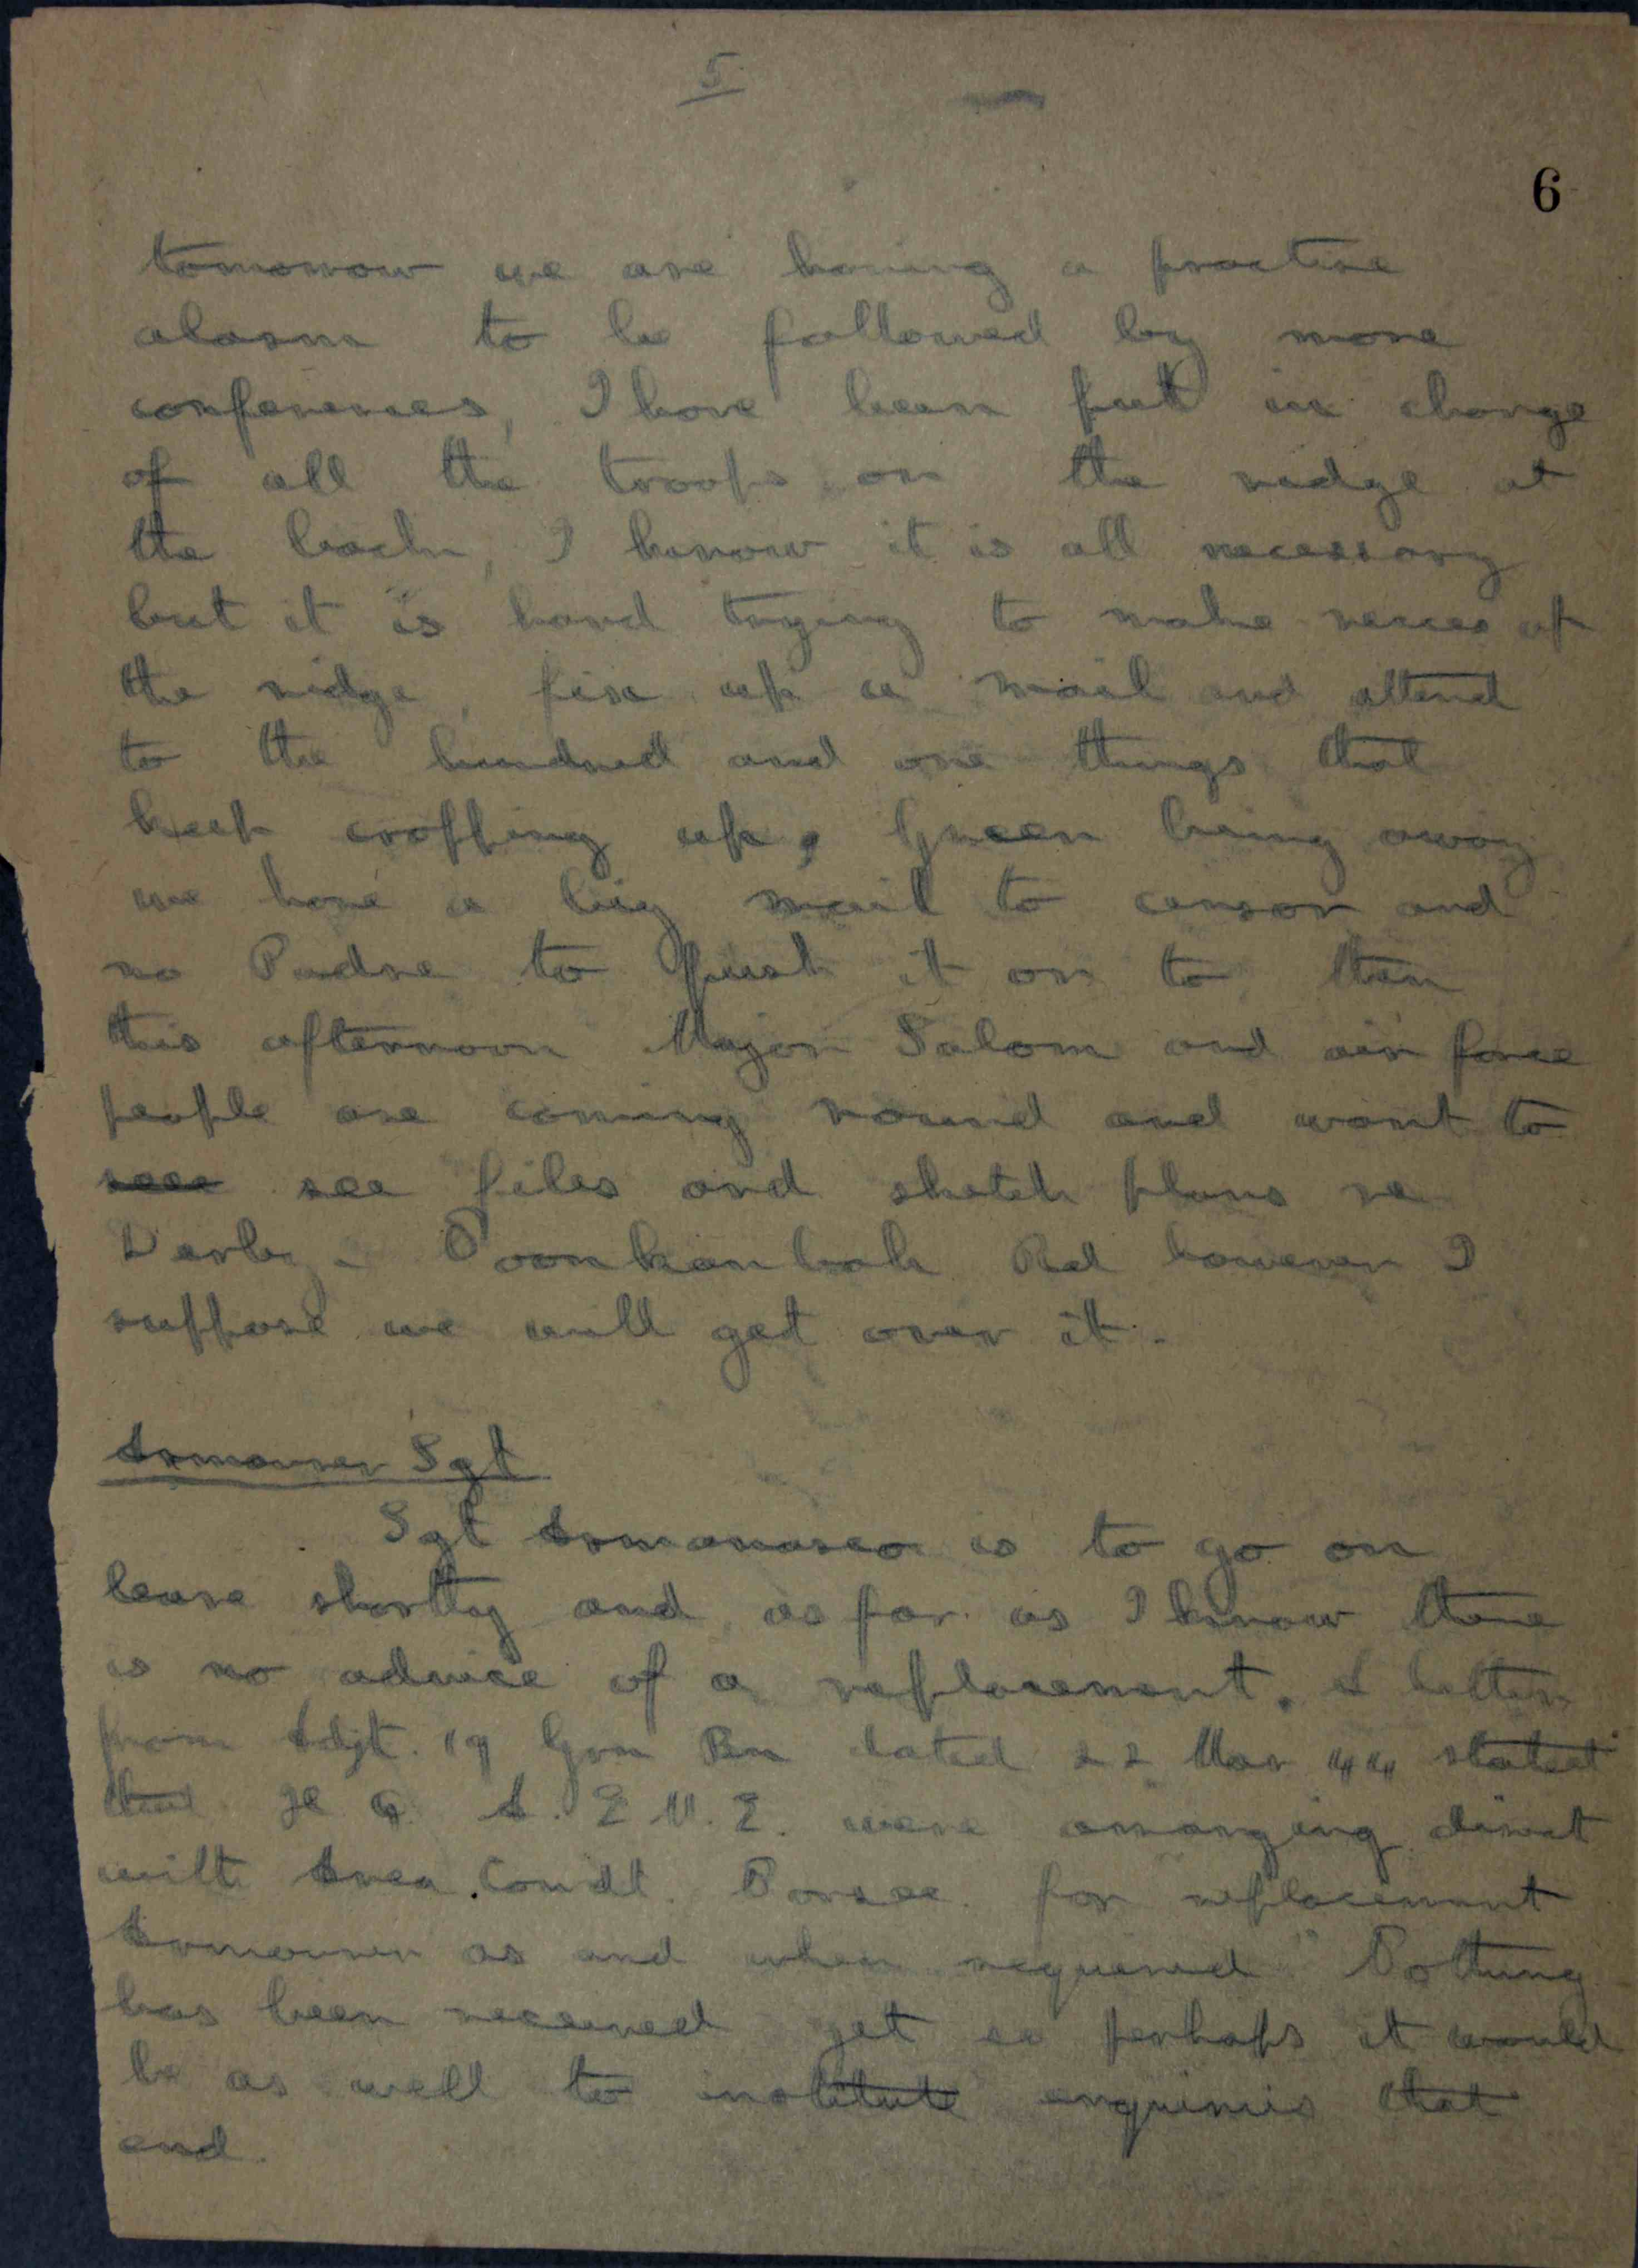 5
6
tomorrow we are having a practise
alarm to be followed by more
conferences, I have been put in charge
of all the troops on the ridge at
the back, I know it is all necessary
but it is hard trying to make recces of
the ridge, fix up a mail and attend
to the hundred and one things that
keep cropping up, Green being away
we have a big mail to censor and
no Padre to push it on to then
this afternoon Major Salom and air force
people are coming round and want to
see see files and sketch plans re
Derby - Noonkanbah Rd however I
suppose we will get over it.
Armourer Sgt
Sgt is to go on
leave shortly and as far as I know there
is no advice of a replacement. A letter
from Adjt. 19 Grn Bn dated 22 Mar 44 stated
that H Q A. E M. E. were arranging direct
with Area Comdt. for replacement
Armourer as and when required" Nothing
has been received yet so perhaps it would
be as well to institute enquiries that
end.